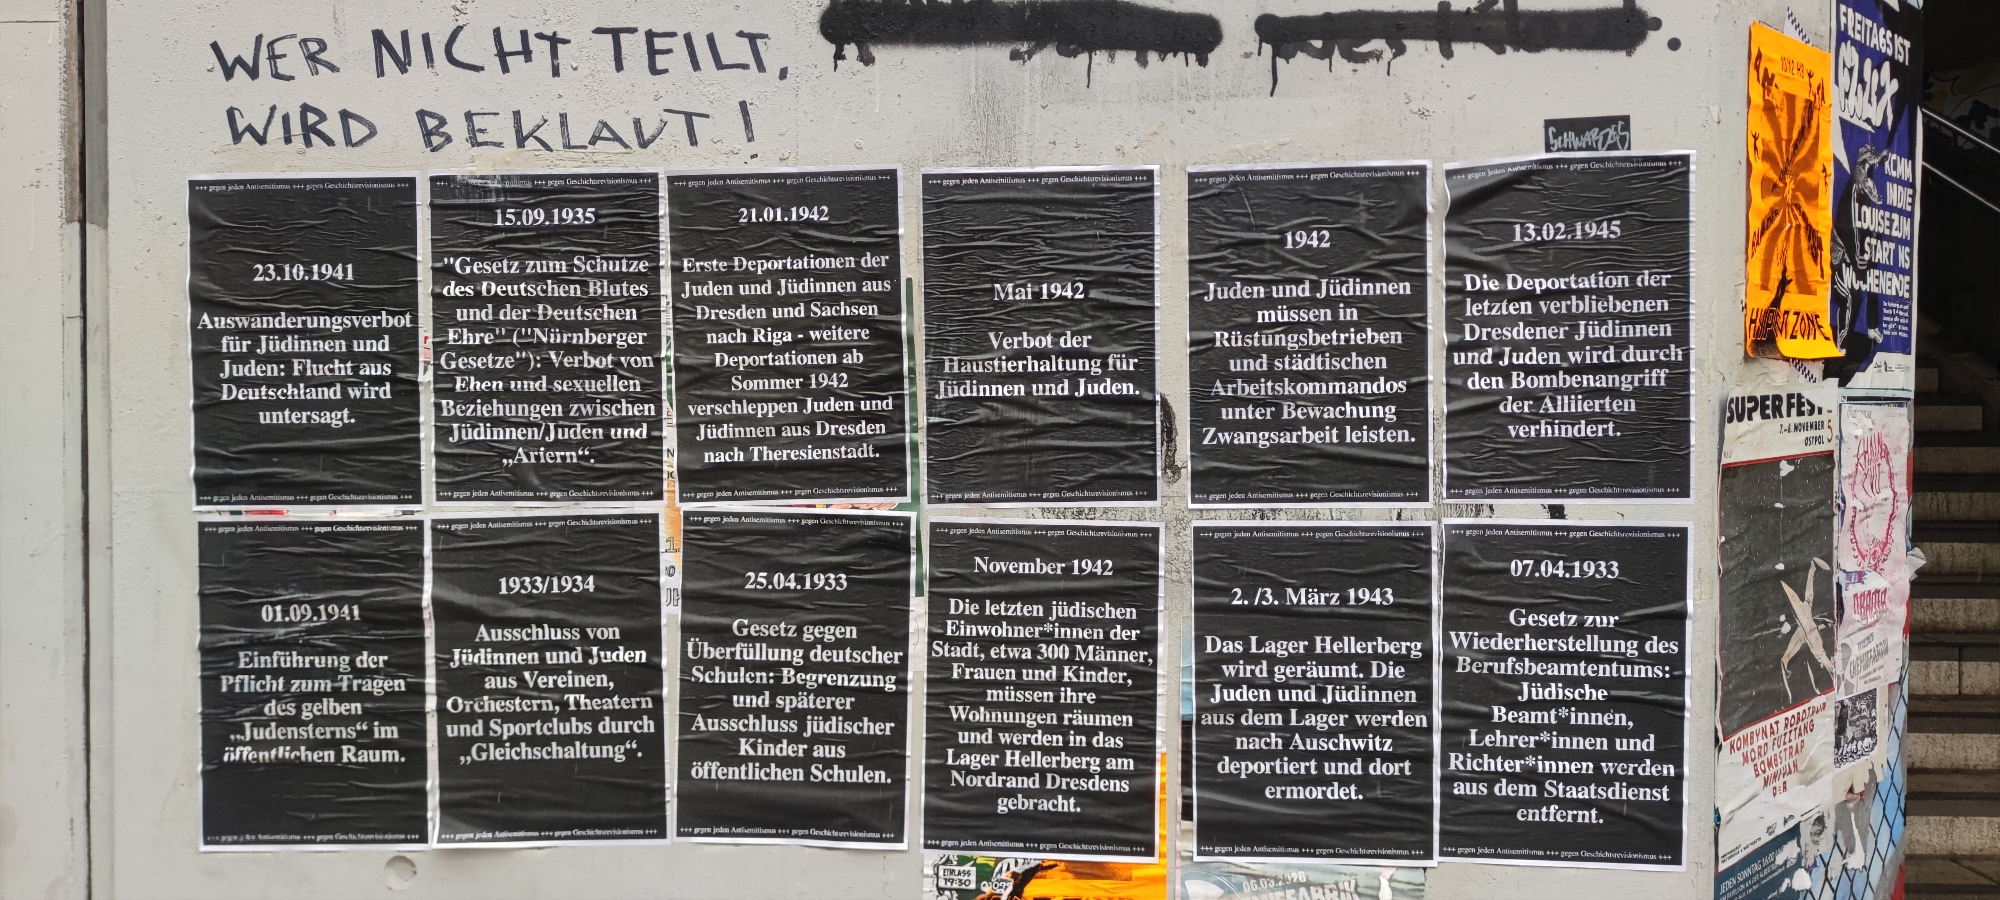 WER NICHT TEILT,
WIRD BEKLAUT!
SCHWARZES
+++ gegen jeden Antisemitismus +++ gegen Geschichtsrevisionismus +++
23.10.1941
Auswanderungsverbot
für Jüdinnen und
Juden: Flucht aus
Deutschland wird
untersagt.
+++ gegen jeden Antisemitismus +++ gegen Geschichtsrevisionismus +++
+++ gegen Geschichtsrevisionismus +++
15.09.1935
"Gesetz zum Schutze
des Deutschen Blutes
und der Deutschen
Ehre" ("Nürnberger
Gesetze"): Verbot von
Ehen und sexuellen
Beziehungen zwischen
Jüdinnen/Juden und
„Ariern“.
+++ gegen jeden Antisemitismus +++ gegen Geschichtsrevisionismus +++
+++ gegen jeden Antisemitismus +++ gegen Geschichtsrevisionismus +++
21.01.1942
Erste Deportationen der
Juden und Jüdinnen aus
Dresden und Sachsen
nach Riga - weitere
Deportationen ab
Sommer 1942
verschleppen Juden und
Jüdinnen aus Dresden
nach Theresienstadt.
+++ gegen jeden Antisemitismus +++ gegen Geschichtsrevisionismus +++
+++ gegen jeden Antisemitismus +++ gegen Geschichtsrevisionismus +++
Mai 1942
Verbot der
Haustierhaltung für
Jüdinnen und Juden.
+++ gegen jeden Antisemitismus +++ gegen Geschichtsrevisionismus +++
+++ gegen jeden Antisemitismus +++ gegen Geschichtsrevisionismus +++
1942
Juden und Jüdinnen
müssen in
Rüstungsbetrieben
und städtischen
Arbeitskommandos
unter Bewachung
Zwangsarbeit leisten.
+++ gegen jeden Antisemitismus +++ gegen Geschichtsrevisionismus +++
+++ gegen jeden Antisemitismus +++ gegen Geschichtsrevisionismus +++
13.02.1945
Die Deportation der
letzten verbliebenen
Dresdener Jüdinnen
und Juden wird durch
den Bombenangriff
der Alliierten
verhindert.
+++ gegen jeden Antisemitismus +++ gegen Geschichtsrevisionismus +++
+++ gegen jeden Antisemitismus +++ gegen Geschichtsrevisionismus +++
01.09.1941
Einführung der
Pflicht zum Tragen
des gelben
„Judensterns“ im
öffentlichen Raum.
+++ gegen jeden Antisemitismus +++ gegen Geschichtsrevisionismus +++
+++ gegen jeden Antisemitismus +++ gegen Geschichtsrevisionismus +++
1933/1934
Ausschluss von
Jüdinnen und Juden
aus Vereinen,
Orchestern, Theatern
und Sportclubs durch
„Gleichschaltung“.
+++ gegen jeden Antisemitismus +++ gegen Geschichtsrevisionismus +++
+++ gegen jeden Antisemitismus +++ gegen Geschichtsrevisionismus +++
25.04.1933
Gesetz gegen
Überfüllung deutscher
Schulen: Begrenzung
und späterer
Ausschluss jüdischer
Kinder aus
öffentlichen Schulen.
+++ gegen jeden Antisemitismus +++ gegen Geschichtsrevisionismus +++
+++ gegen jeden Antisemitismus +++ gegen Geschichtsrevisionismus +++
November 1942
Die letzten jüdischen
Einwohner*innen der
Stadt, etwa 300 Männer,
Frauen und Kinder,
müssen ihre
Wohnungen räumen
und werden in das
Lager Hellerberg am
Nordrand Dresdens
gebracht.
+++ gegen jeden Antisemitismus +++ gegen Geschichtsrevisionismus +++
+++ gegen jeden Antisemitismus +++ gegen Geschichtsrevisionismus +++
2. /3. März 1943
Das Lager Hellerberg
wird geräumt. Die
Juden und Jüdinnen
aus dem Lager werden
nach Auschwitz
deportiert und dort
ermordet.
+++ gegen jeden Antisemitismus +++ gegen Geschichtsrevisionismus +++
+++ gegen jeden Antisemitismus +++ gegen Geschichtsrevisionismus +++
07.04.1933
Gesetz zur
Wiederherstellung des
Berufsbeamtentums:
Jüdische
Beamt*innen,
Lehrer*innen und
Richter*innen werden
aus dem Staatsdienst
entfernt.
+++ gegen jeden Antisemitismus +++ gegen Geschichtsrevisionismus +++
EINLASS
19:30
06.03.2026
ZONE
FREITAGS IST
KOMM
INDIE
LOUISE ZUM
START INS
WOCHENENDE
SUPER FEST 5
7.-8. NOVEMBER
OSTPOL
KOMBYNAT ROBOTRON
MORD FUZZTANG
BOMBSTRAP
JEDEN SONNTAG 16:00